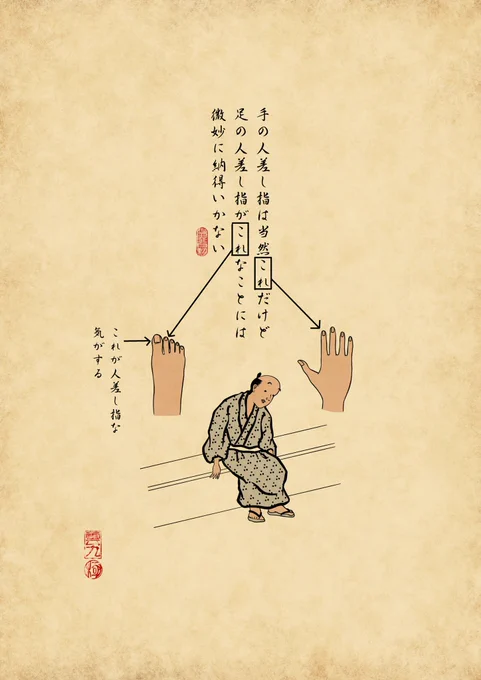 手の人差し指は当然これだけど
足の人差し指がこれなことには
微妙に納得いかない
これが人差し指な
気がする